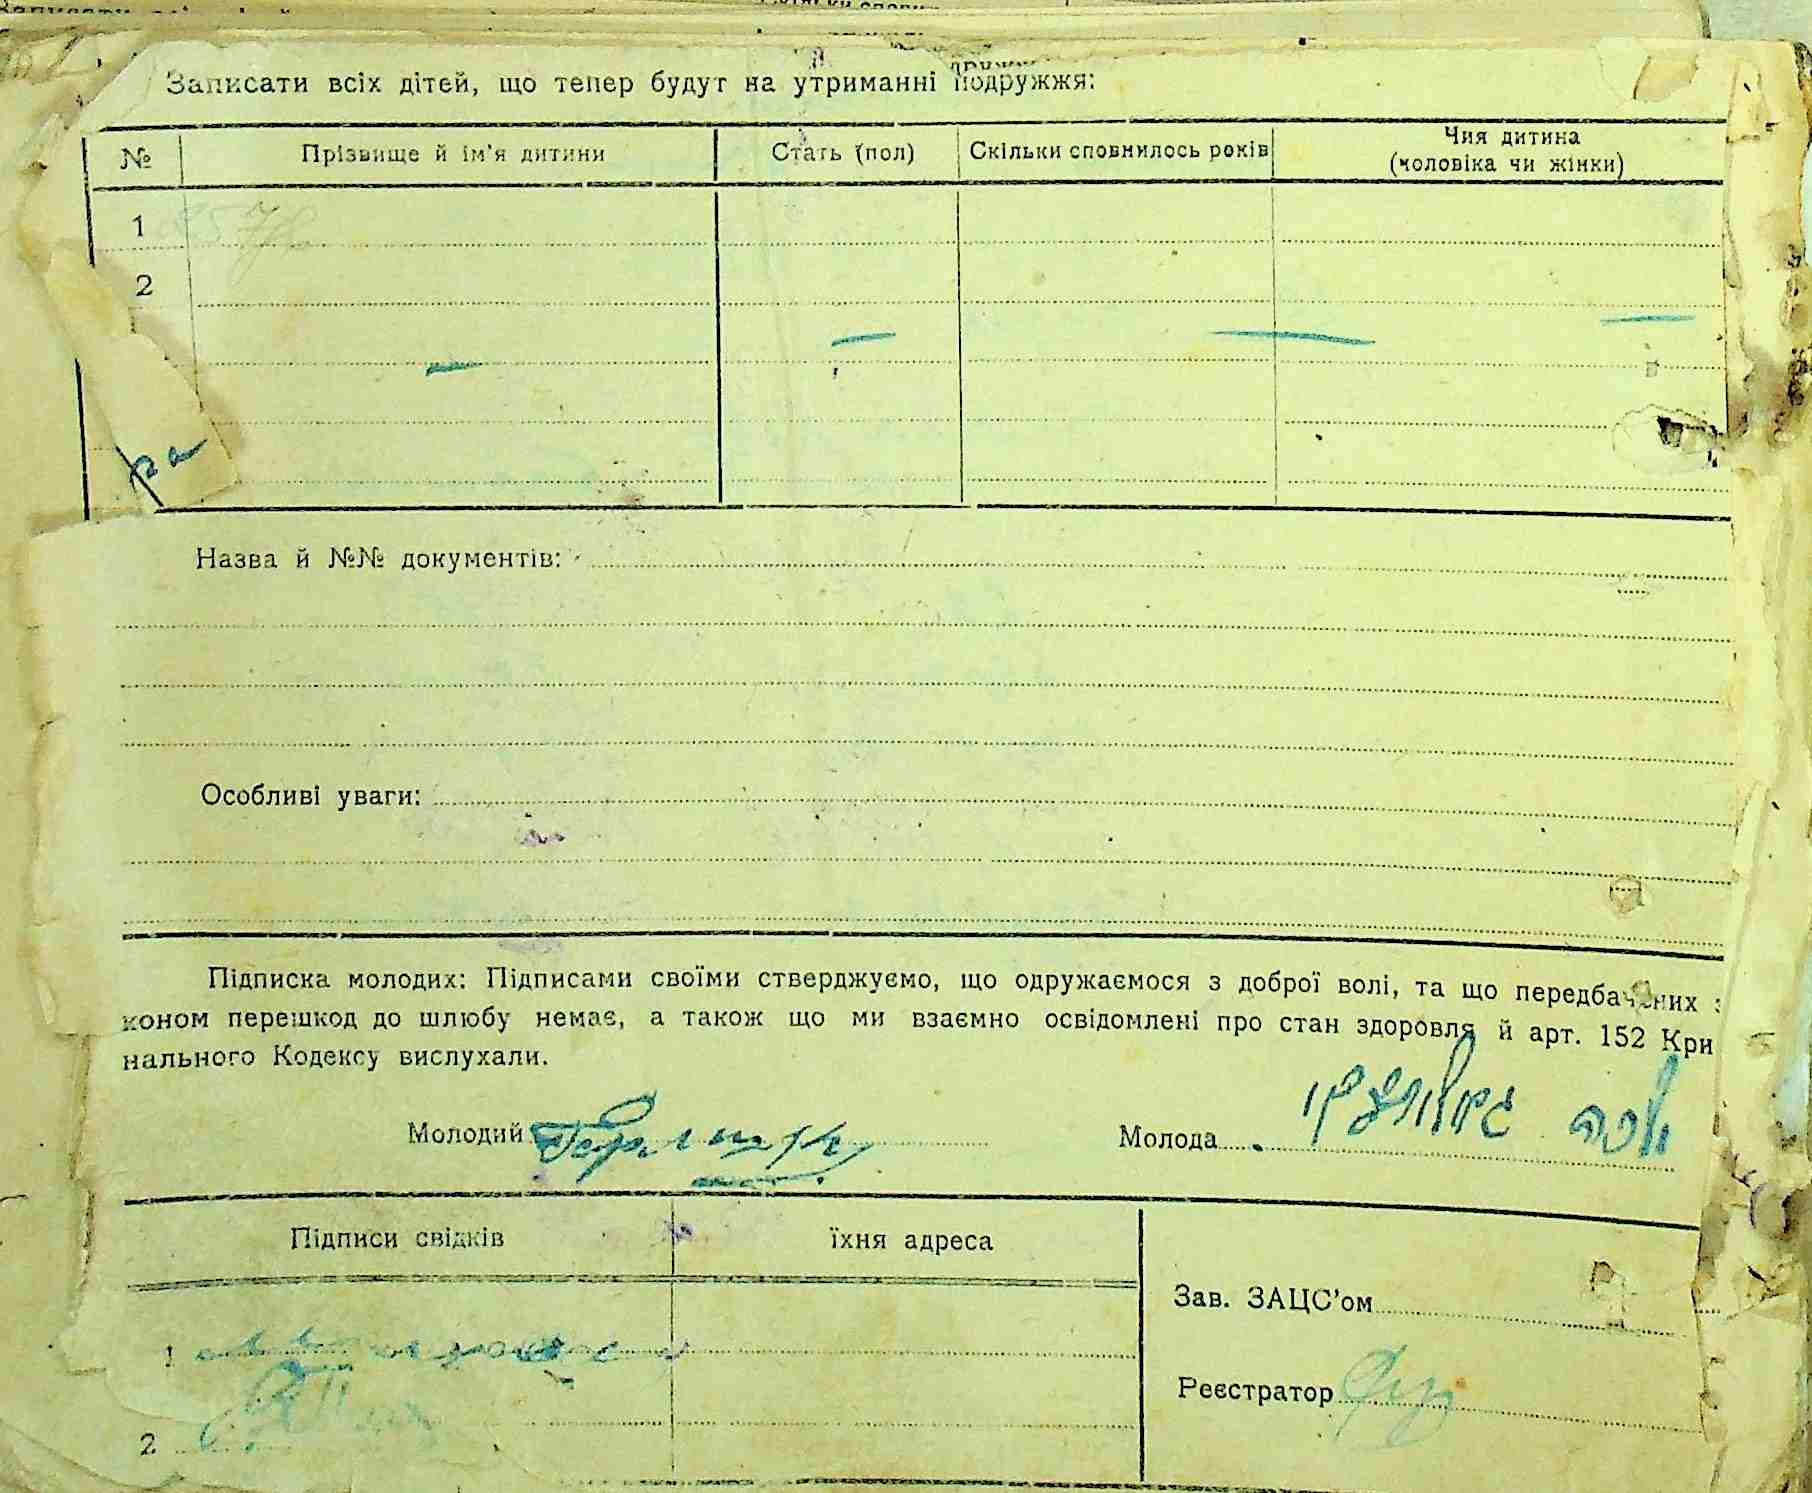 Записати всіх дітей, що тепер будут на утриманні подружжя:
№ Прізвище й ім'я дитини Стать (пол) Скільки сповнилось років Чия дитина
(чоловіка чи жінки)
1
2
ра
Назва й №№ документів:
Особливі уваги:
Підписка молодих: Підписами своїми стверджуємо, що одружаємося з доброї волі, та що передбачених з
коном перешкод до шлюбу немає, а також що ми взаємно освідомлені про стан здоровля й арт. 152 Кри
нального Кодексу вислухали.
Молодий Молода
Підписи свідків їхня адреса
Зав. ЗАЦС'ом
1
Реєстратор
2